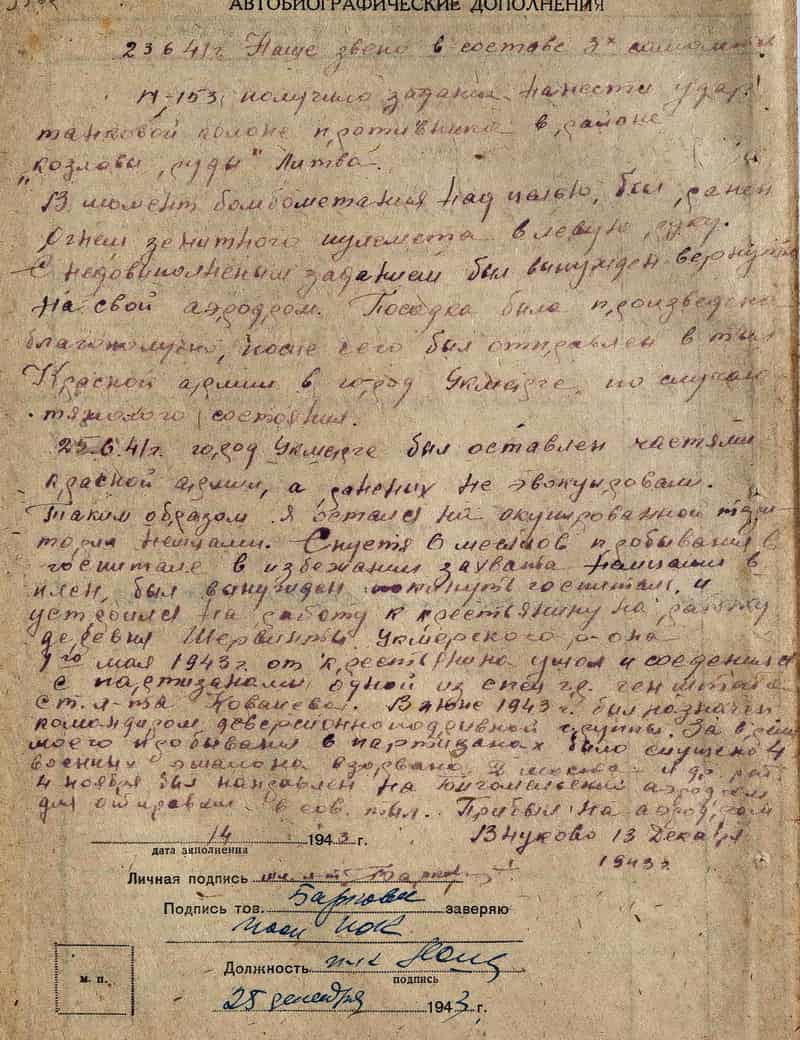 АВТОБИОГРАФИЧЕСКИЕ ДОПОЛНЕНИЯ
23 6 41 г. Наше звено в составе 3х
И-153, получило задание нанести удар
танковой колоне противника в районе
„козловы руды" Литва.
В момент бомбометания над целью, был ранен
Огнем зенитного пулемета в левую руку.
С недовиполненым заданием был вынужден вернутся
на свой аэродром. Посадка была произведена
благополучно, после чего был отправлен в тыл
Красной армии в город Укмерге, по случаю
тяжолого состояния.
25.6.41 г. город Укмерге был оставлен частями
красной армии, а раненых не эвокуировали.
Таким образом я остался на окупированной тери-
тории немцами. Спустя 6 месяцов пробывания в
госпитале в избежании захвата немцами в
плен, был вынужден покинуть госпиталь, и
устроился на работу к крестьянину на
деревня Шервинты Укмерского р-она
1го мая 1943 г. от крестьянина ушол и соеденился
с партизанами одной из спец гр. ген штаба
ст. л-та В июне 1943 г. был назначен
командиром деверсионно подрывной группы. За время
моего пробывания в партизанах было спущено 4
военных эшалона взорвано 2 и др.
4 ноября был направлен на аэродром
для отправки в сов. тыл. Прибыл на аэродром
Внуково 13 Декабря
1943 г.
14 1943 г.
дата заполнения
Личная подпись мл. л-т
Подпись тов. заверяю
Должность
подпись
м. п.
25 декабря 1943 г.